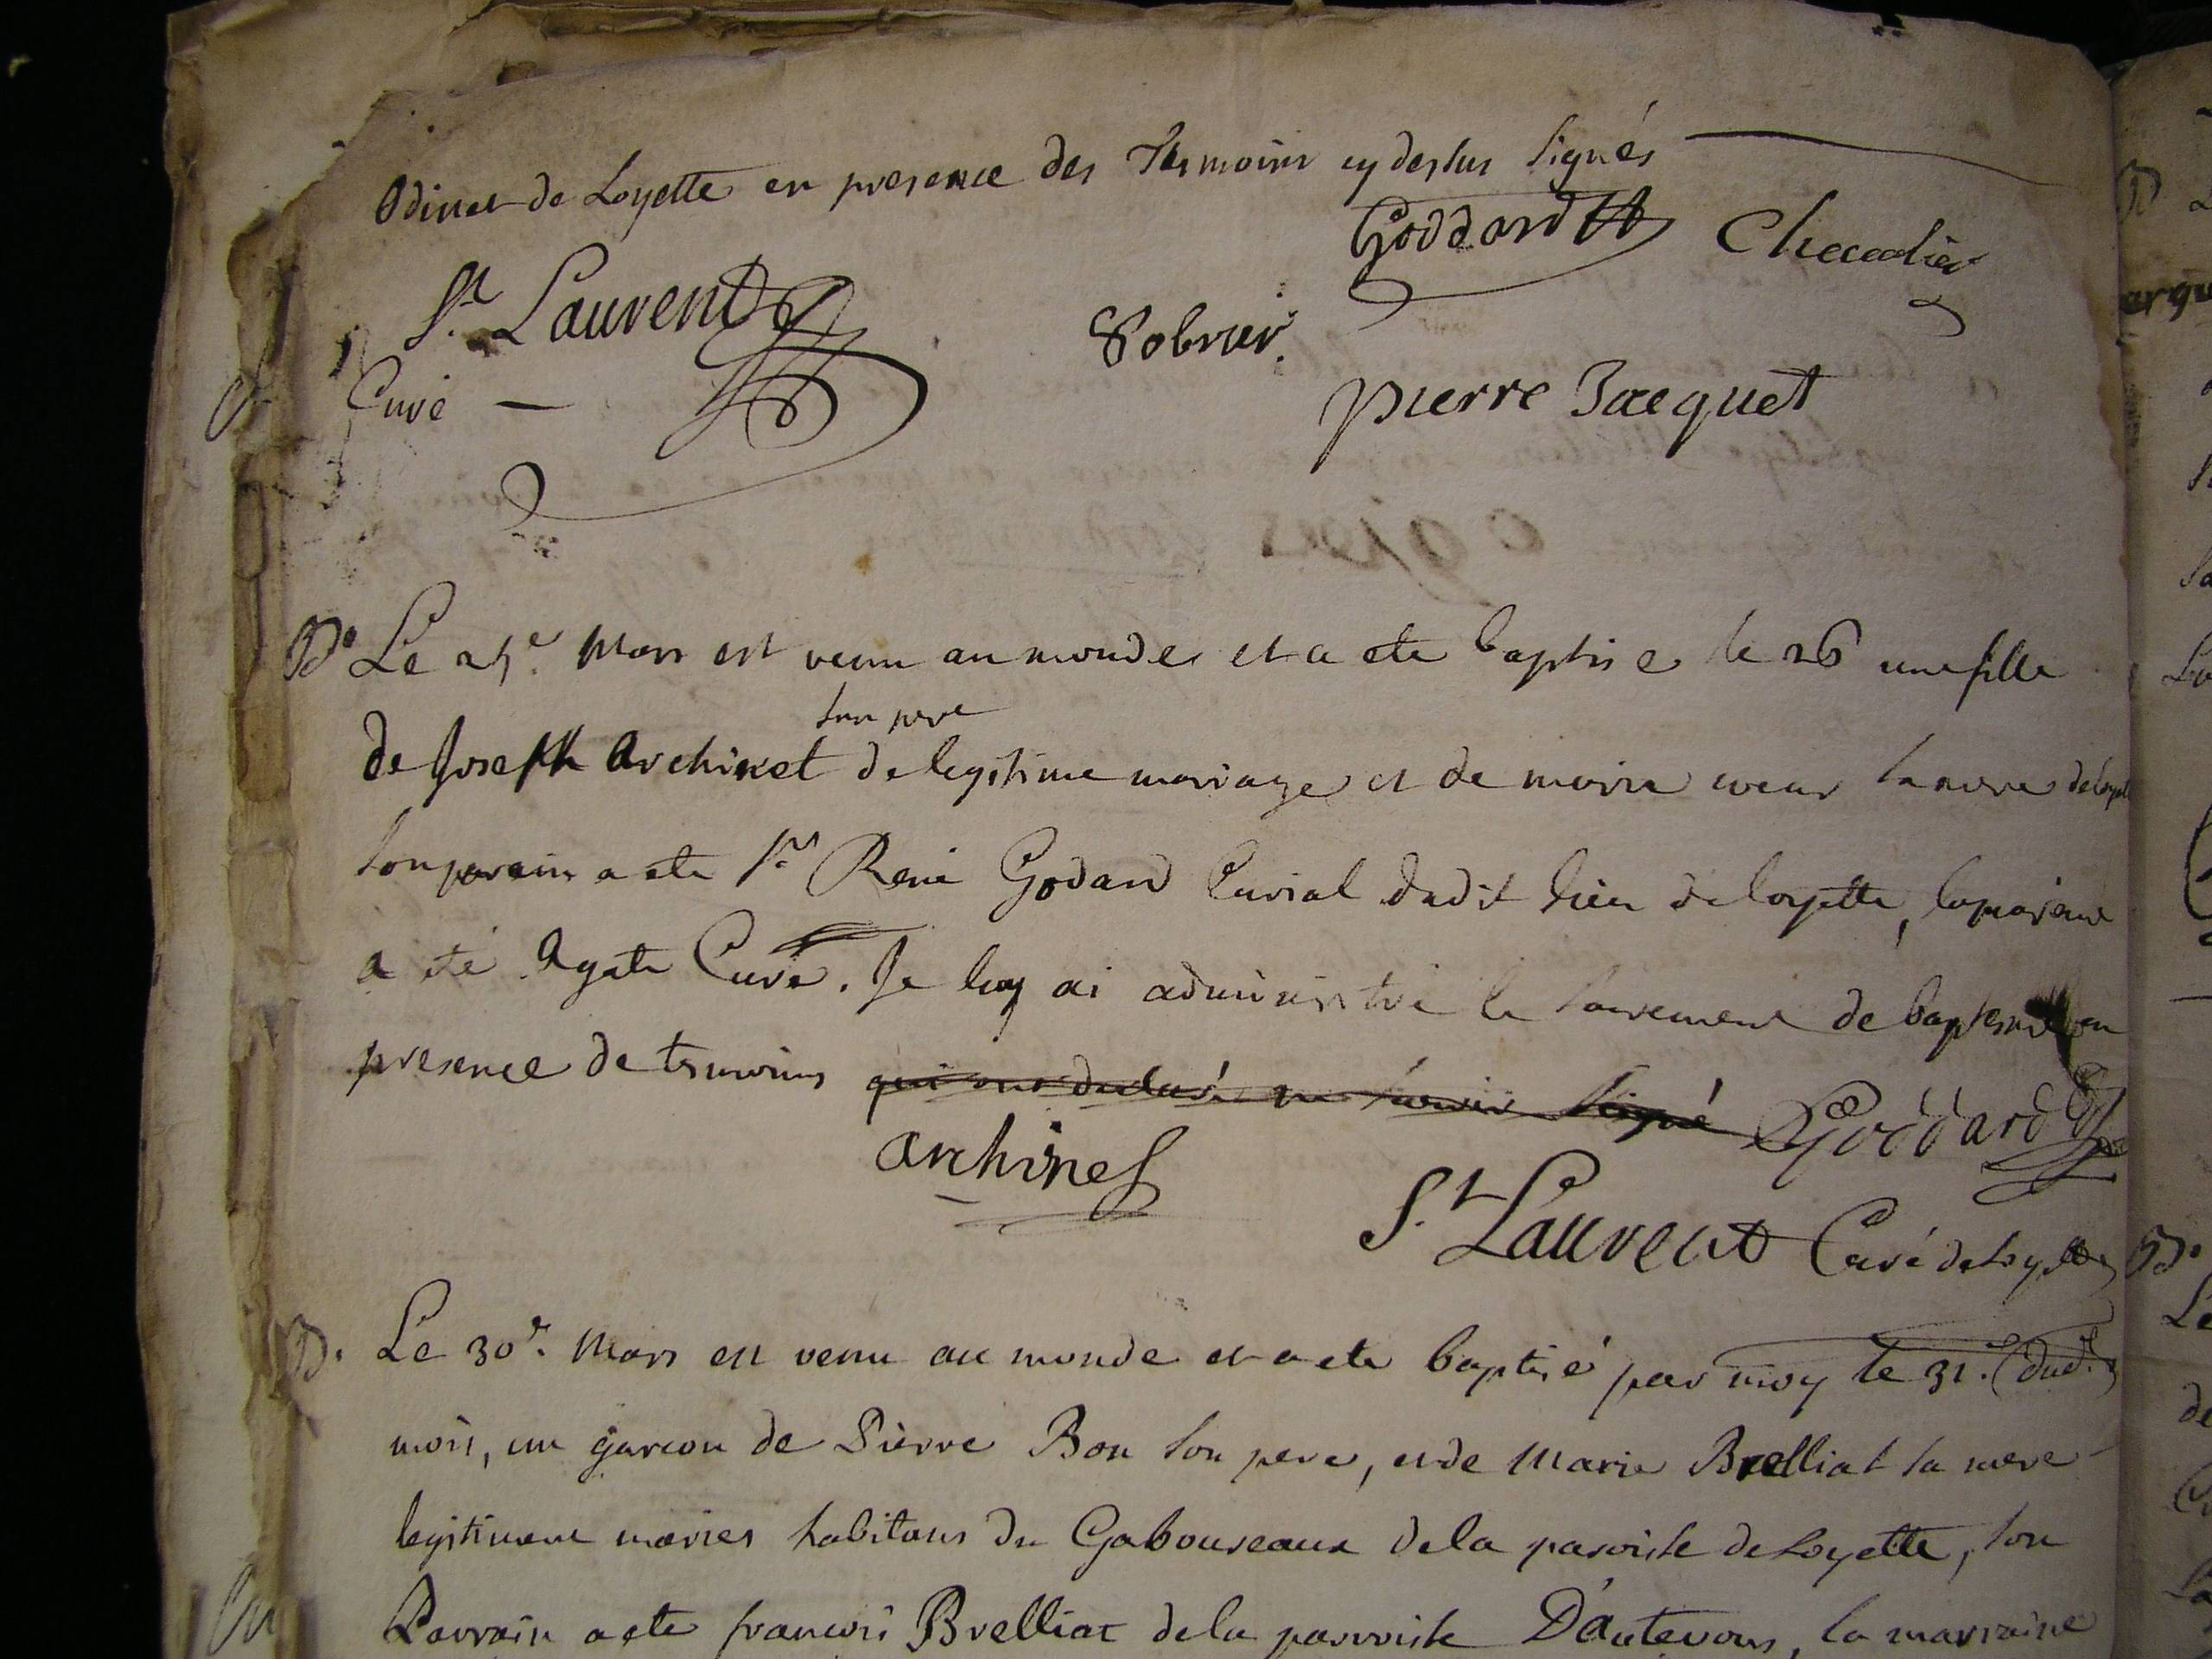 Odinet de Loyette en presence des Tesmoins cy dessus signés
Goddard Chevalier
St. Laurent
Sobrier.
Curé —
pierre Jacquet
B. Le 25e. Mars est venu au monde et a ete baptisé le 26 une fille
son pere
de Joseph Archinet de legitime mariage et de sa mere de Loyette
son parain a ete Sr. René Godard Curial dudit lieu de loyette, la maraine
a eté Agate Curé. Je luy ai administré le sacrement de baptesme en
presence de temoins qui ont declaré ne savoir signé Goddard
Archinet
St. Laurent Curé de Loyette
B. Le 30e. Mars est venu au monde et a ete baptisé par moy le 31. (dud.)
mois, un garcon de Pierre Bon son pere, et de Marie Brelliat sa mere
legitimement mariés habitans du Gaboureaux de la paroisse de Loyette, son
Parrain a ete francois Brelliat de la parroisse D'Autevons, la marraine